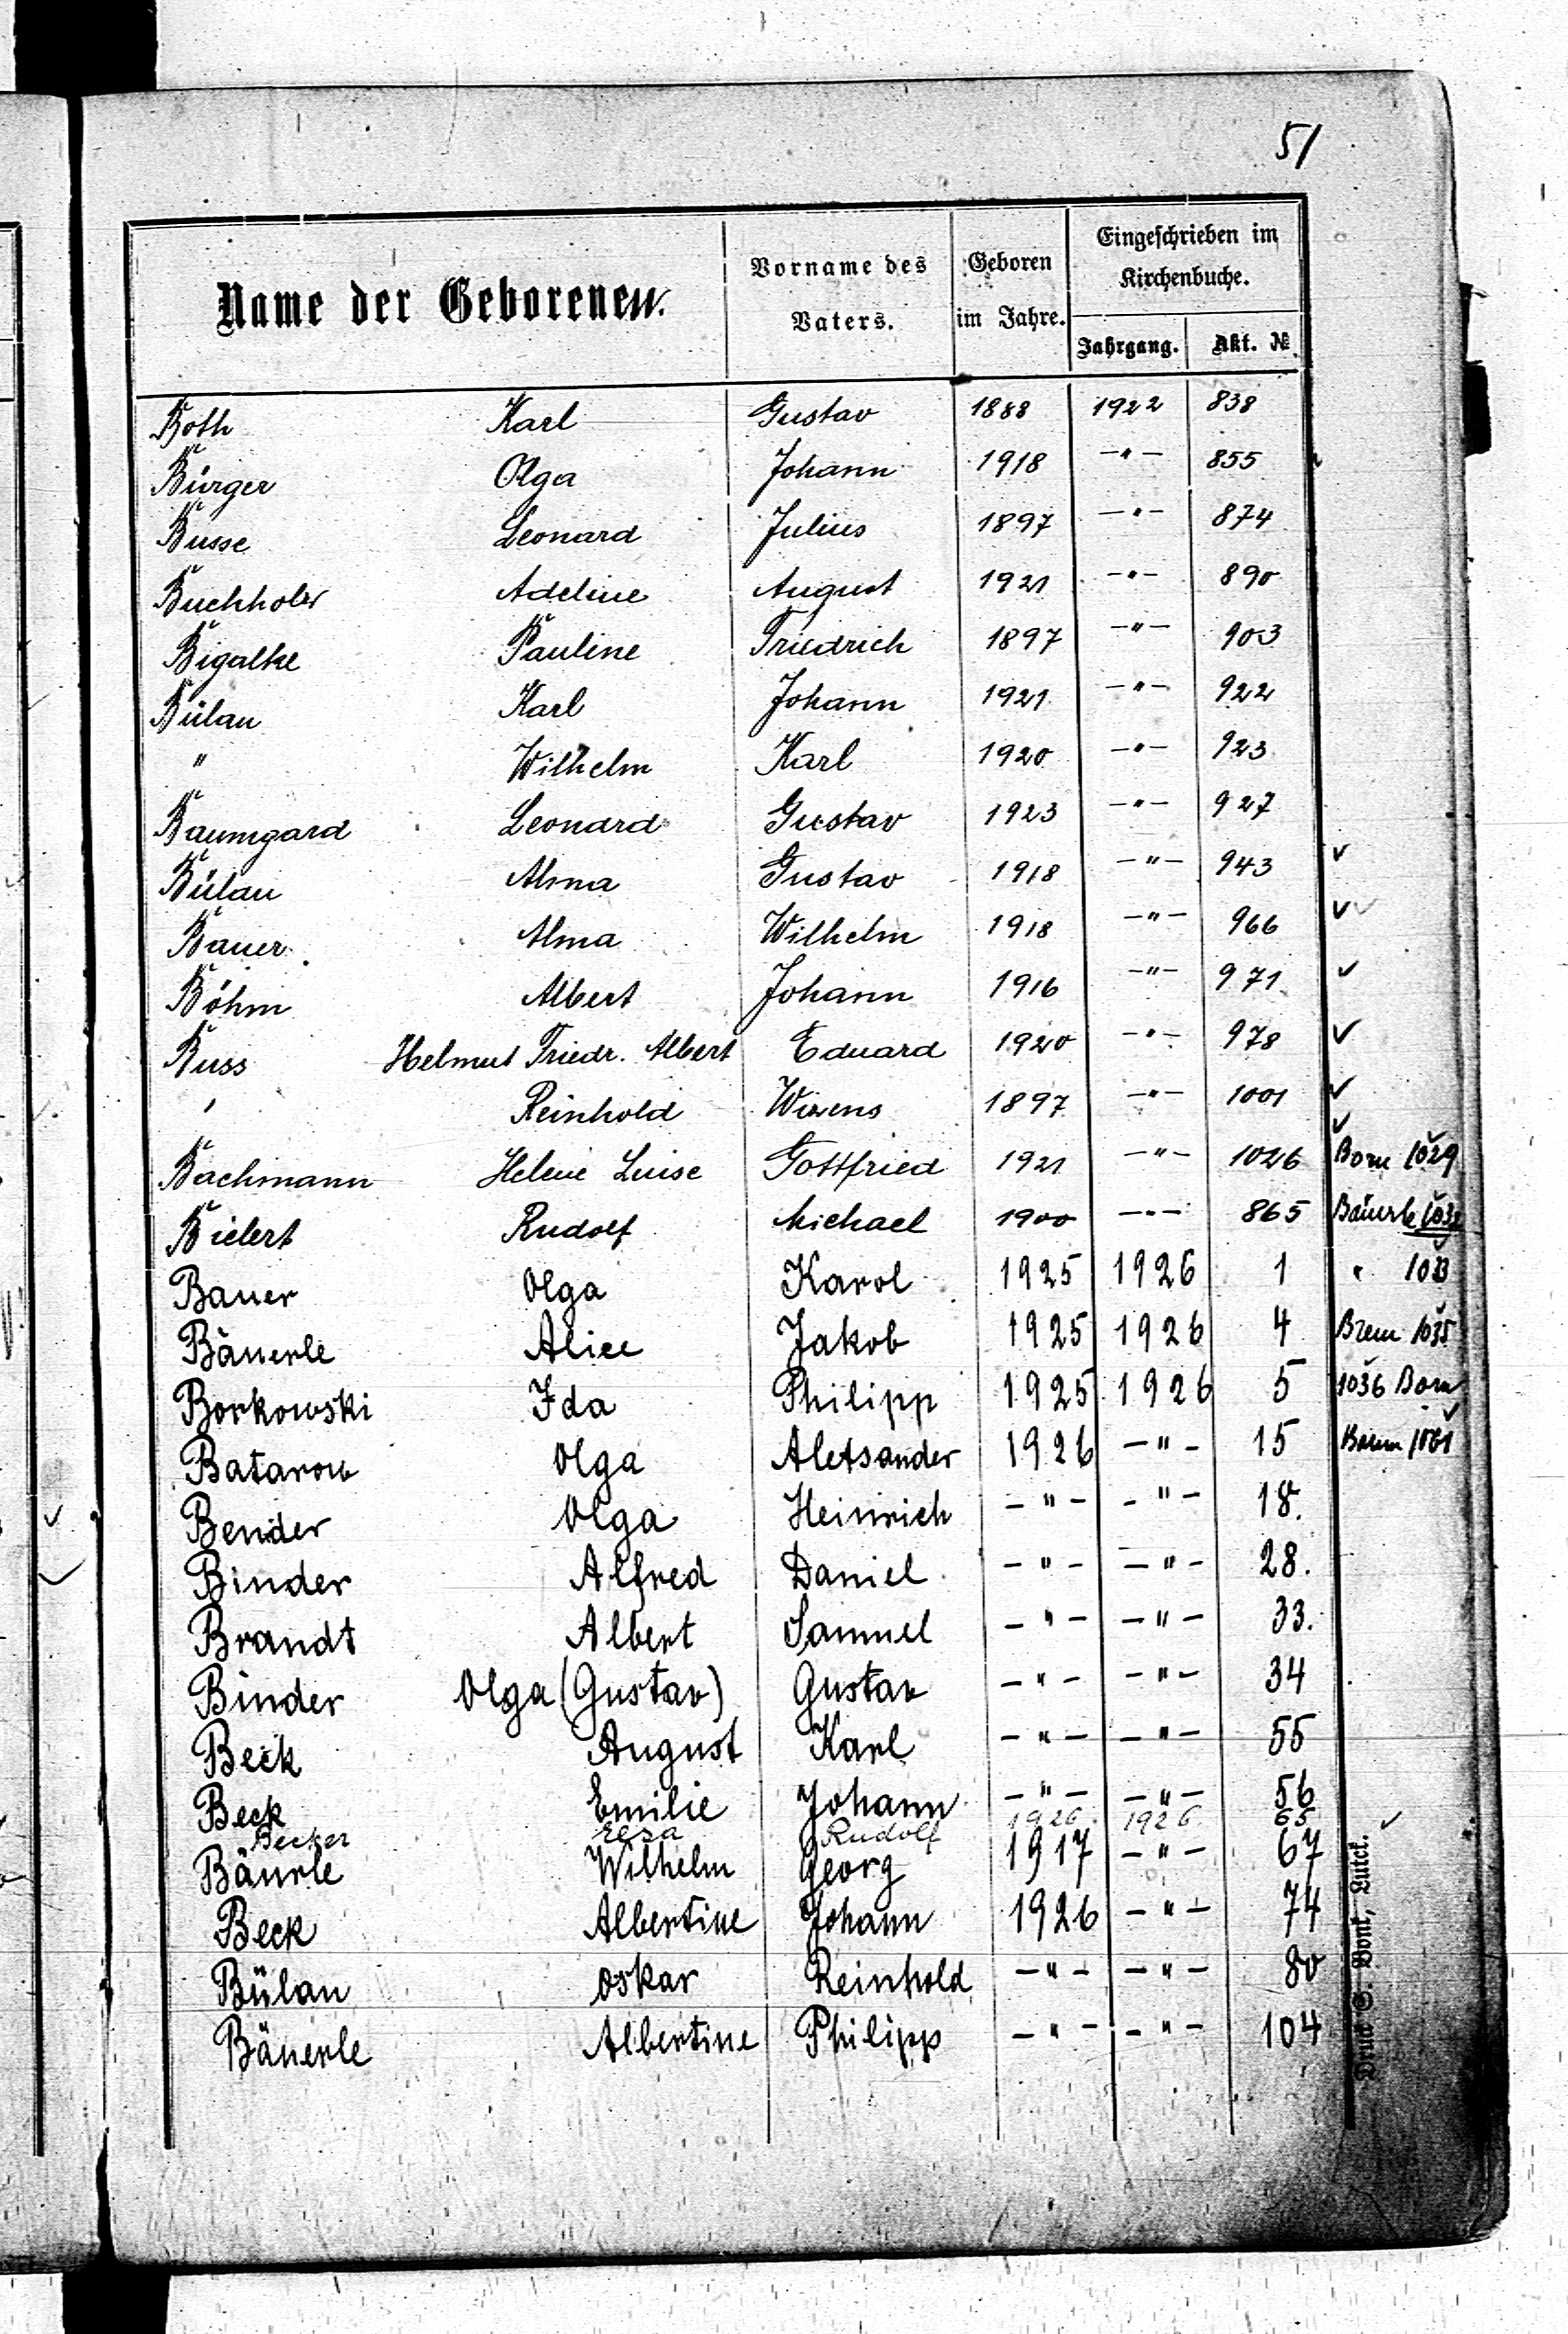 51
Name der Geborenen.
Vorname des Vaters.
Geboren im Jahre.
Eingeschrieben im Kirchenbuche.
Jahrgang. Akt. №
Both Karl Gustav 1888 1922 838
Bürger Olga Johann 1918 -"- 855
Busse Leonard Julius 1897 -"- 874
Buchholz Adeline August 1921 -"- 890
Bigalke Pauline Friedrich 1897 -"- 903
Bülau Karl Johann 1921 -"- 922
" Wilhelm Karl 1920 -"- 923
Baumgard Leonard Gustav 1923 -"- 927
Bülau Alma Gustav 1918 -"- 943 ✓
Bauer Alma Wilhelm 1918 -"- 966 ✓✓
Böhm Albert Johann 1916 -"- 971 ✓
Buss Helmut Friedr. Albert Eduard 1920 -"- 978 ✓
" Reinhold 1897 -"- 1001 ✓
Bachmann Helene Luise Gottfried 1921 -"- 1026 1029
Bielert Rudolf Michael 1900 -"- 865 Bäuerle
Bauer Olga Karol 1925 1926 1 " 1033
Bäuerle Alice Jakob 1925 1926 4 1035
Borkowski Ida Philipp 1925 1926 5 1036
Batarow Olga Aleksander 1926 -"- 15
Bender Olga Heinrich -"- -"- 18.
Binder Alfred Daniel -"- -"- 28.
Brandt Albert Samuel -"- -"- 33.
Binder Olga (Gustav) Gustav -"- -"- 34
Beck August Karl -"- -"- 55
Beck Emilie Johann -"- -"- 56
Becker Elsa Rudolf 1926 1926 65 ✓
Bäurle Wilhelm Georg 1917 -"- 67
Beck Albertine Johann 1926 -"- 74
Bülau Oskar Reinhold -"- -"- 80
Bäuerle Albertine Philipp -"- -"- 104